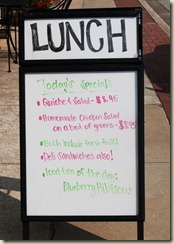 LUNCH
Today's Specials
• Quiche & Salad - $8.95
• Homemade Chicken Salad
on a bed of greens - $8.95
• Both include fresh fruit!
• Deli Sandwiches also!
• Iced tea of the day:
Blueberry Hibiscus